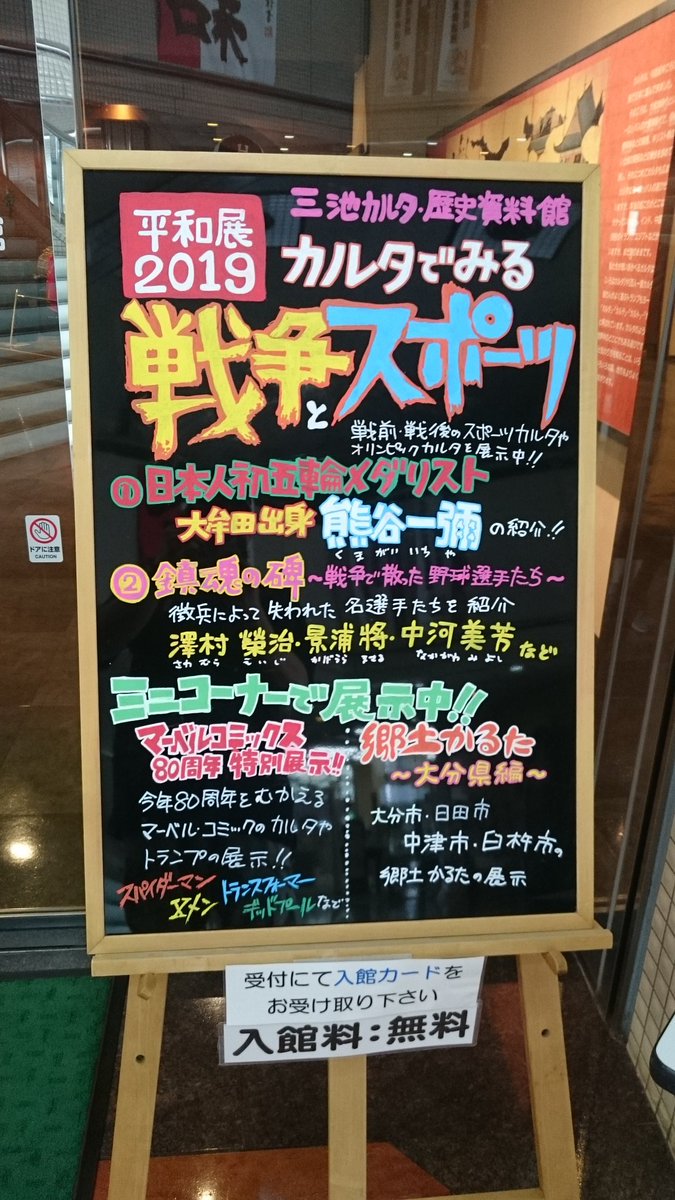 平和展
2019
三池カルタ・歴史資料館
カルタでみる
戦争とスポーツ
戦前・戦後のスポーツカルタや
オリンピックカルタを展示中!!
① 日本人初五輪メダリスト
大牟田出身 熊谷一彌 の紹介!!
くまがい いちや
② 鎮魂の碑 ～戦争で散った野球選手たち～
徴兵によって失われた名選手たちを紹介
澤村榮治・景浦將・中河美芳など
さわむら えいじ かげうら まさる なかがわ みよし
ミニコーナーで展示中!!
マーベルコミックス
80周年 特別展示!!
今年80周年をむかえる
マーベル・コミックのカルタや
トランプの展示!!
スパイダーマン トランスフォーマー
Xメン デッドプールなど
郷土かるた
～大分県編～
大分市・日田市
中津市・臼杵市の
郷土かるたの展示
受付にて入館カードを
お受け取り下さい
入館料：無料
ドアに注意
CAUTION